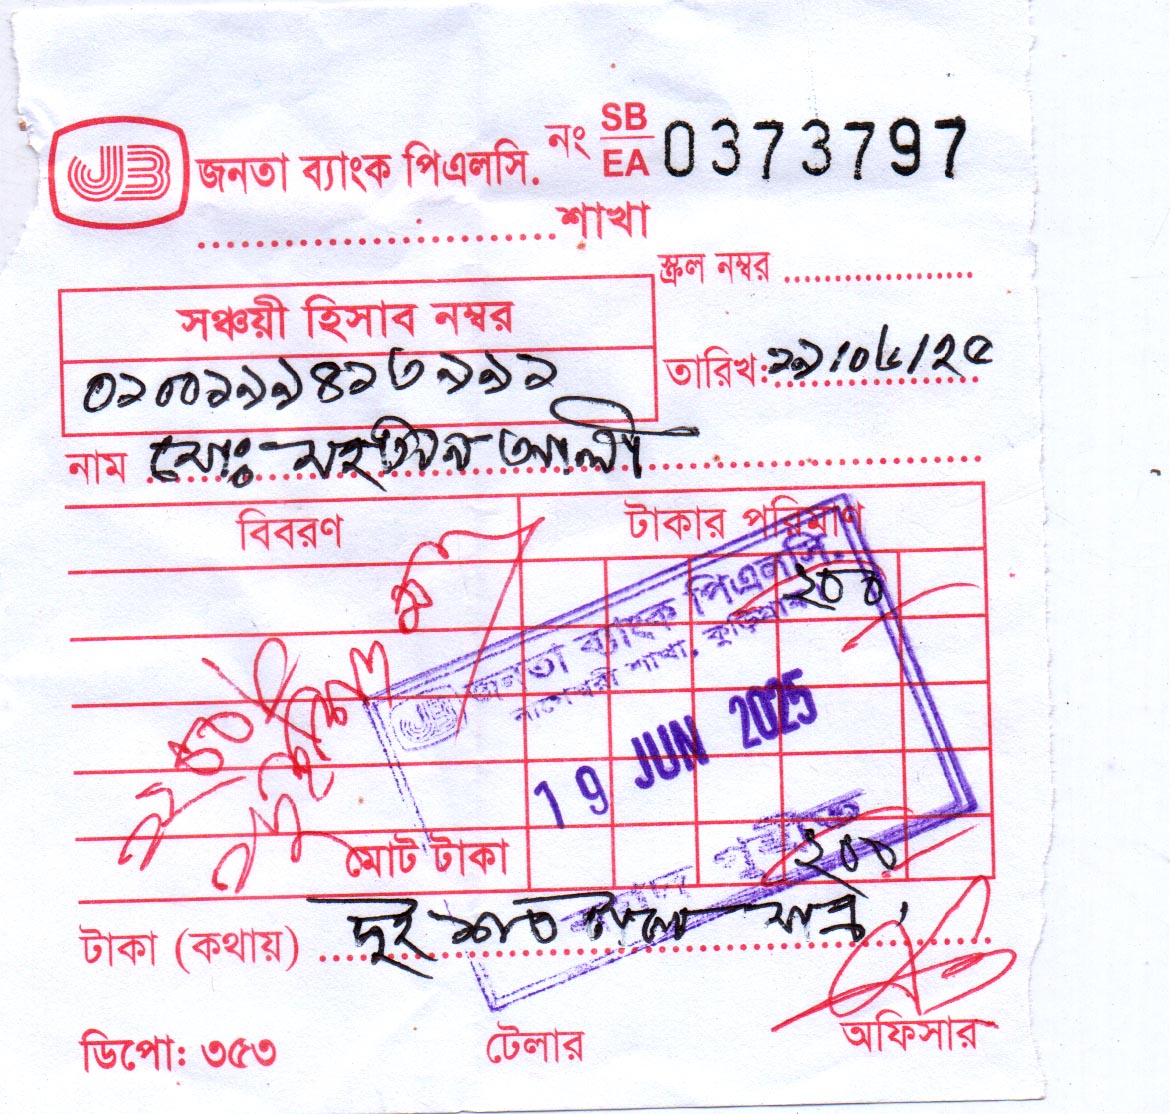 JB জনতা ব্যাংক পিএলসি. নং SB/EA 0373797
........................শাখা
স্ক্রল নম্বর ....................
সঞ্চয়ী হিসাব নম্বর
তারিখ: ১৯/০৬/২৫
০১০০১৯৯৪১৩৯৯১
নাম মোঃ আলী
বিবরণ টাকার পরিমাণ
২০০
জনতা ব্যাংক পিএলসি.
নাগেশ্বরী শাখা, কুড়িগ্রাম
19 JUN 2025
মোট টাকা ২০০
টাকা (কথায়) দুই শত টাকা মাত্র
ডিপো: ৩৫৩ টেলার অফিসার